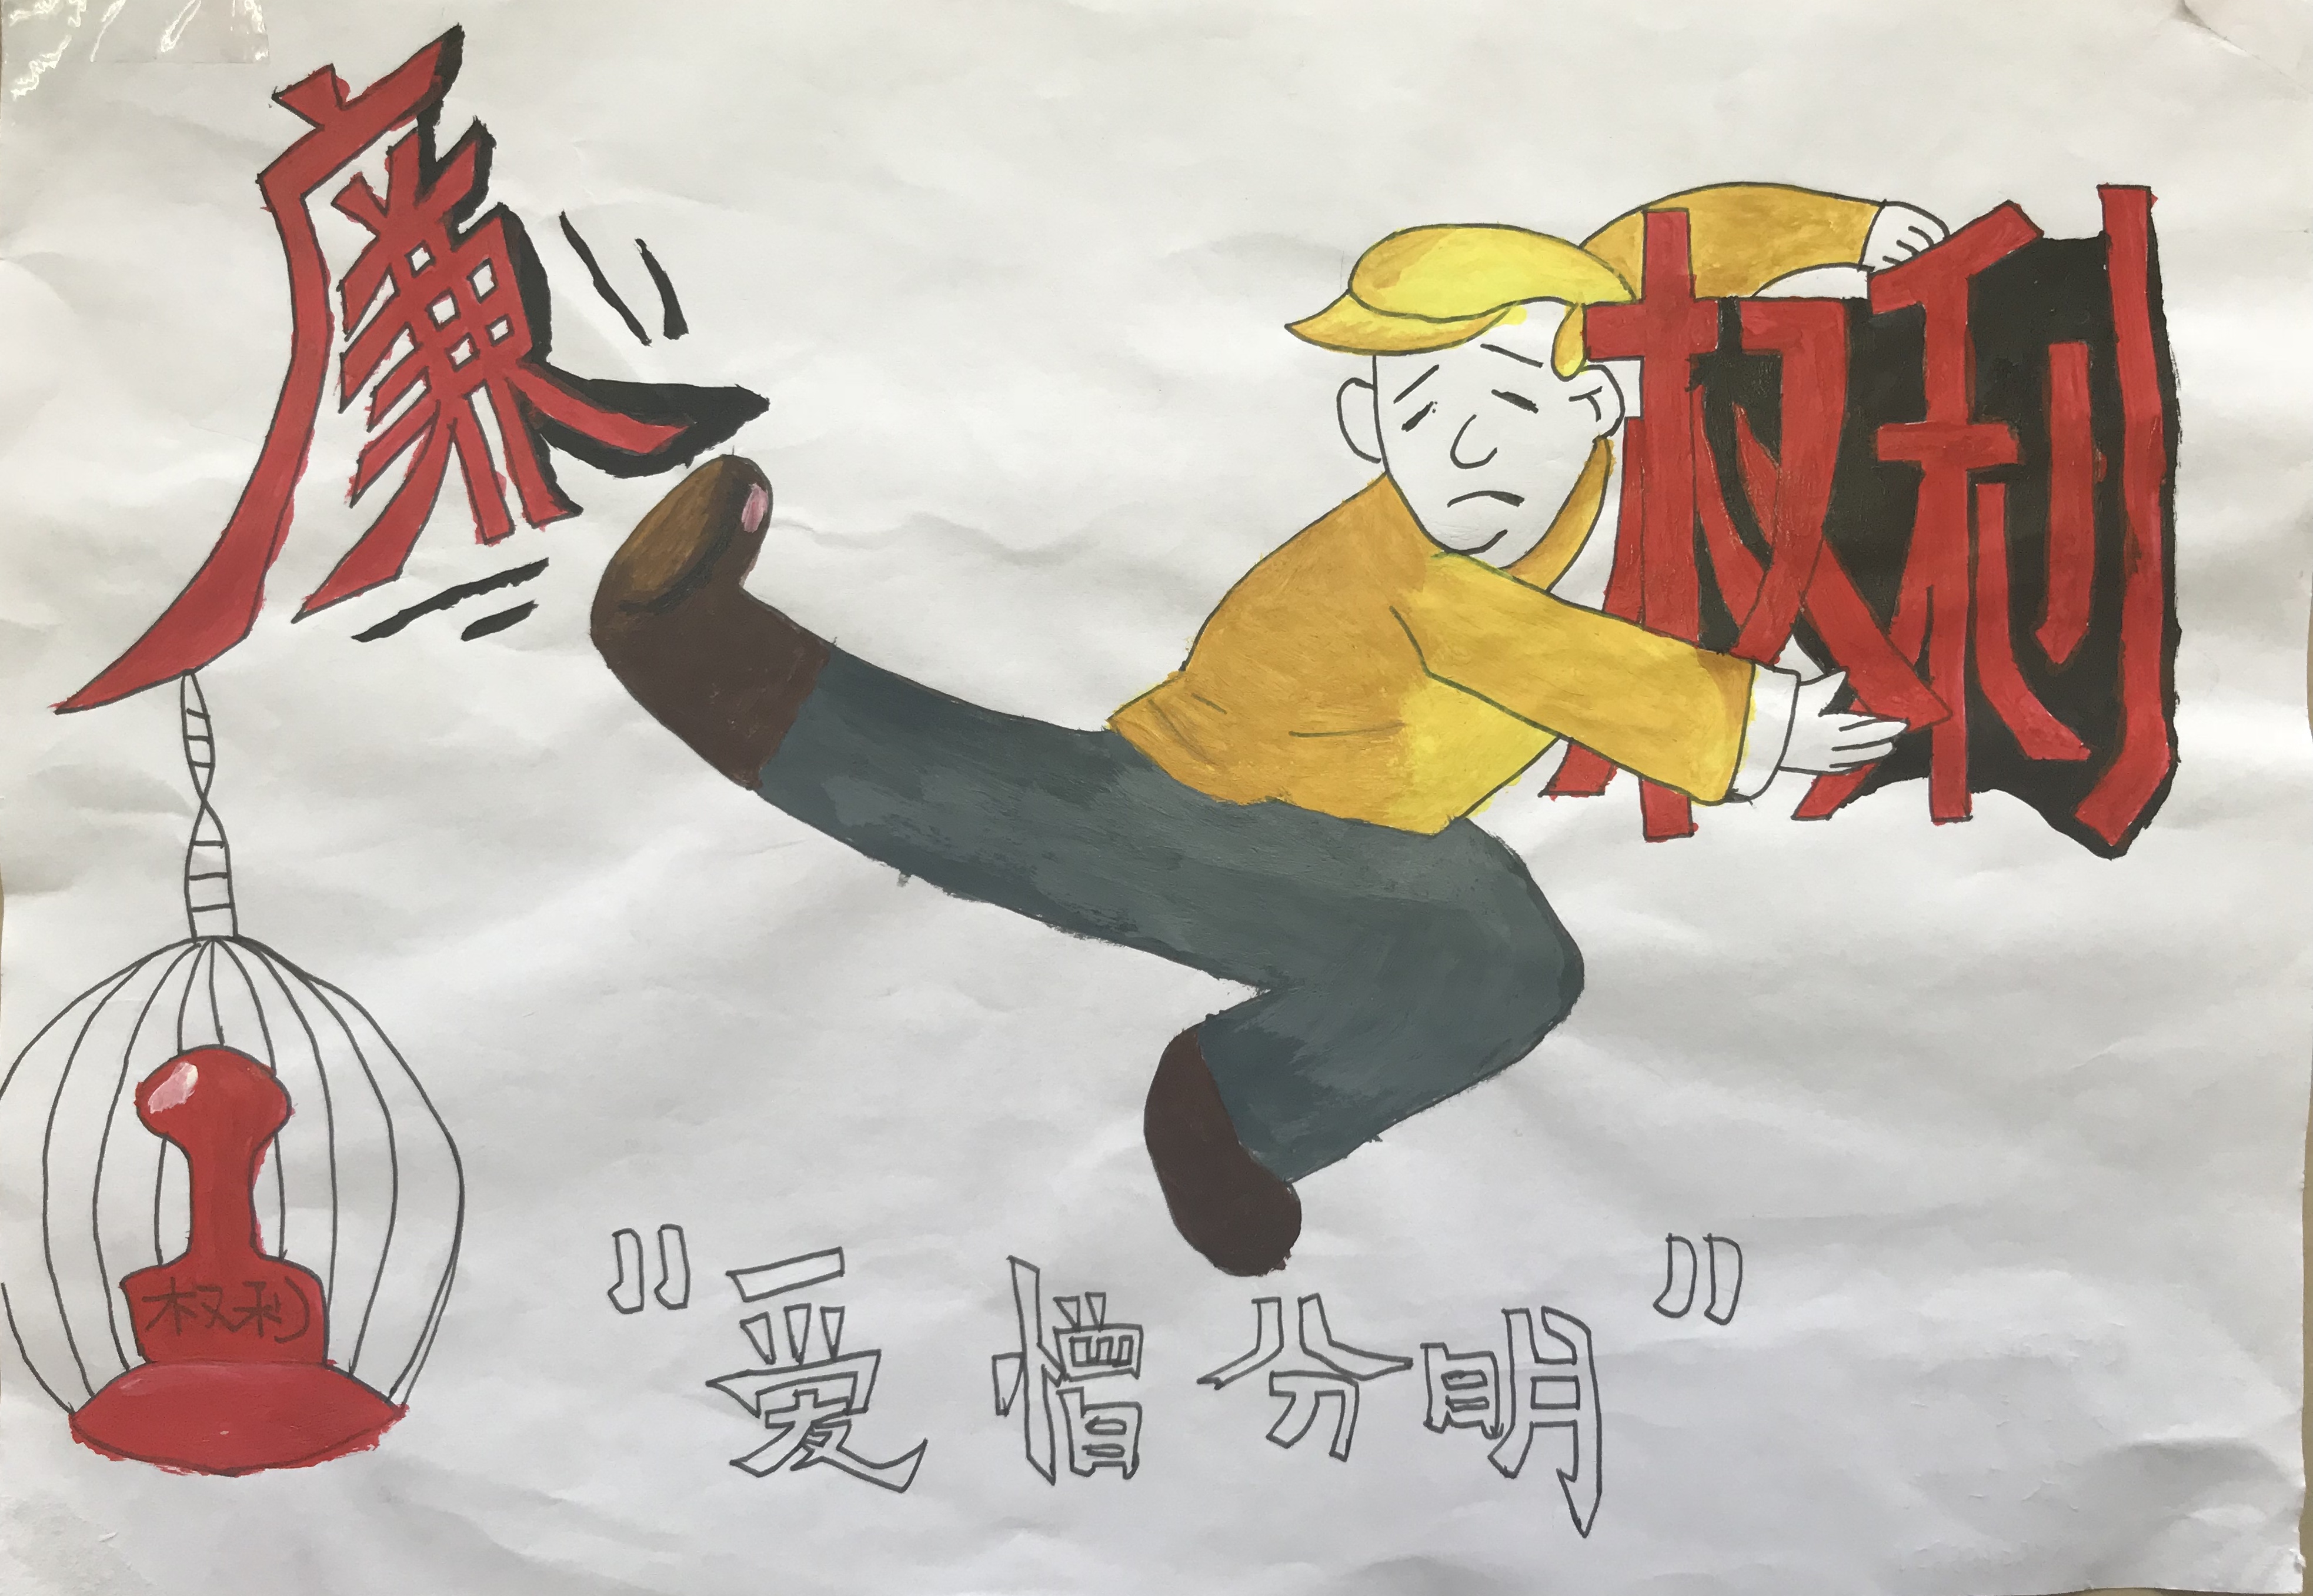 廉
权利
权利
"爱憎分明"